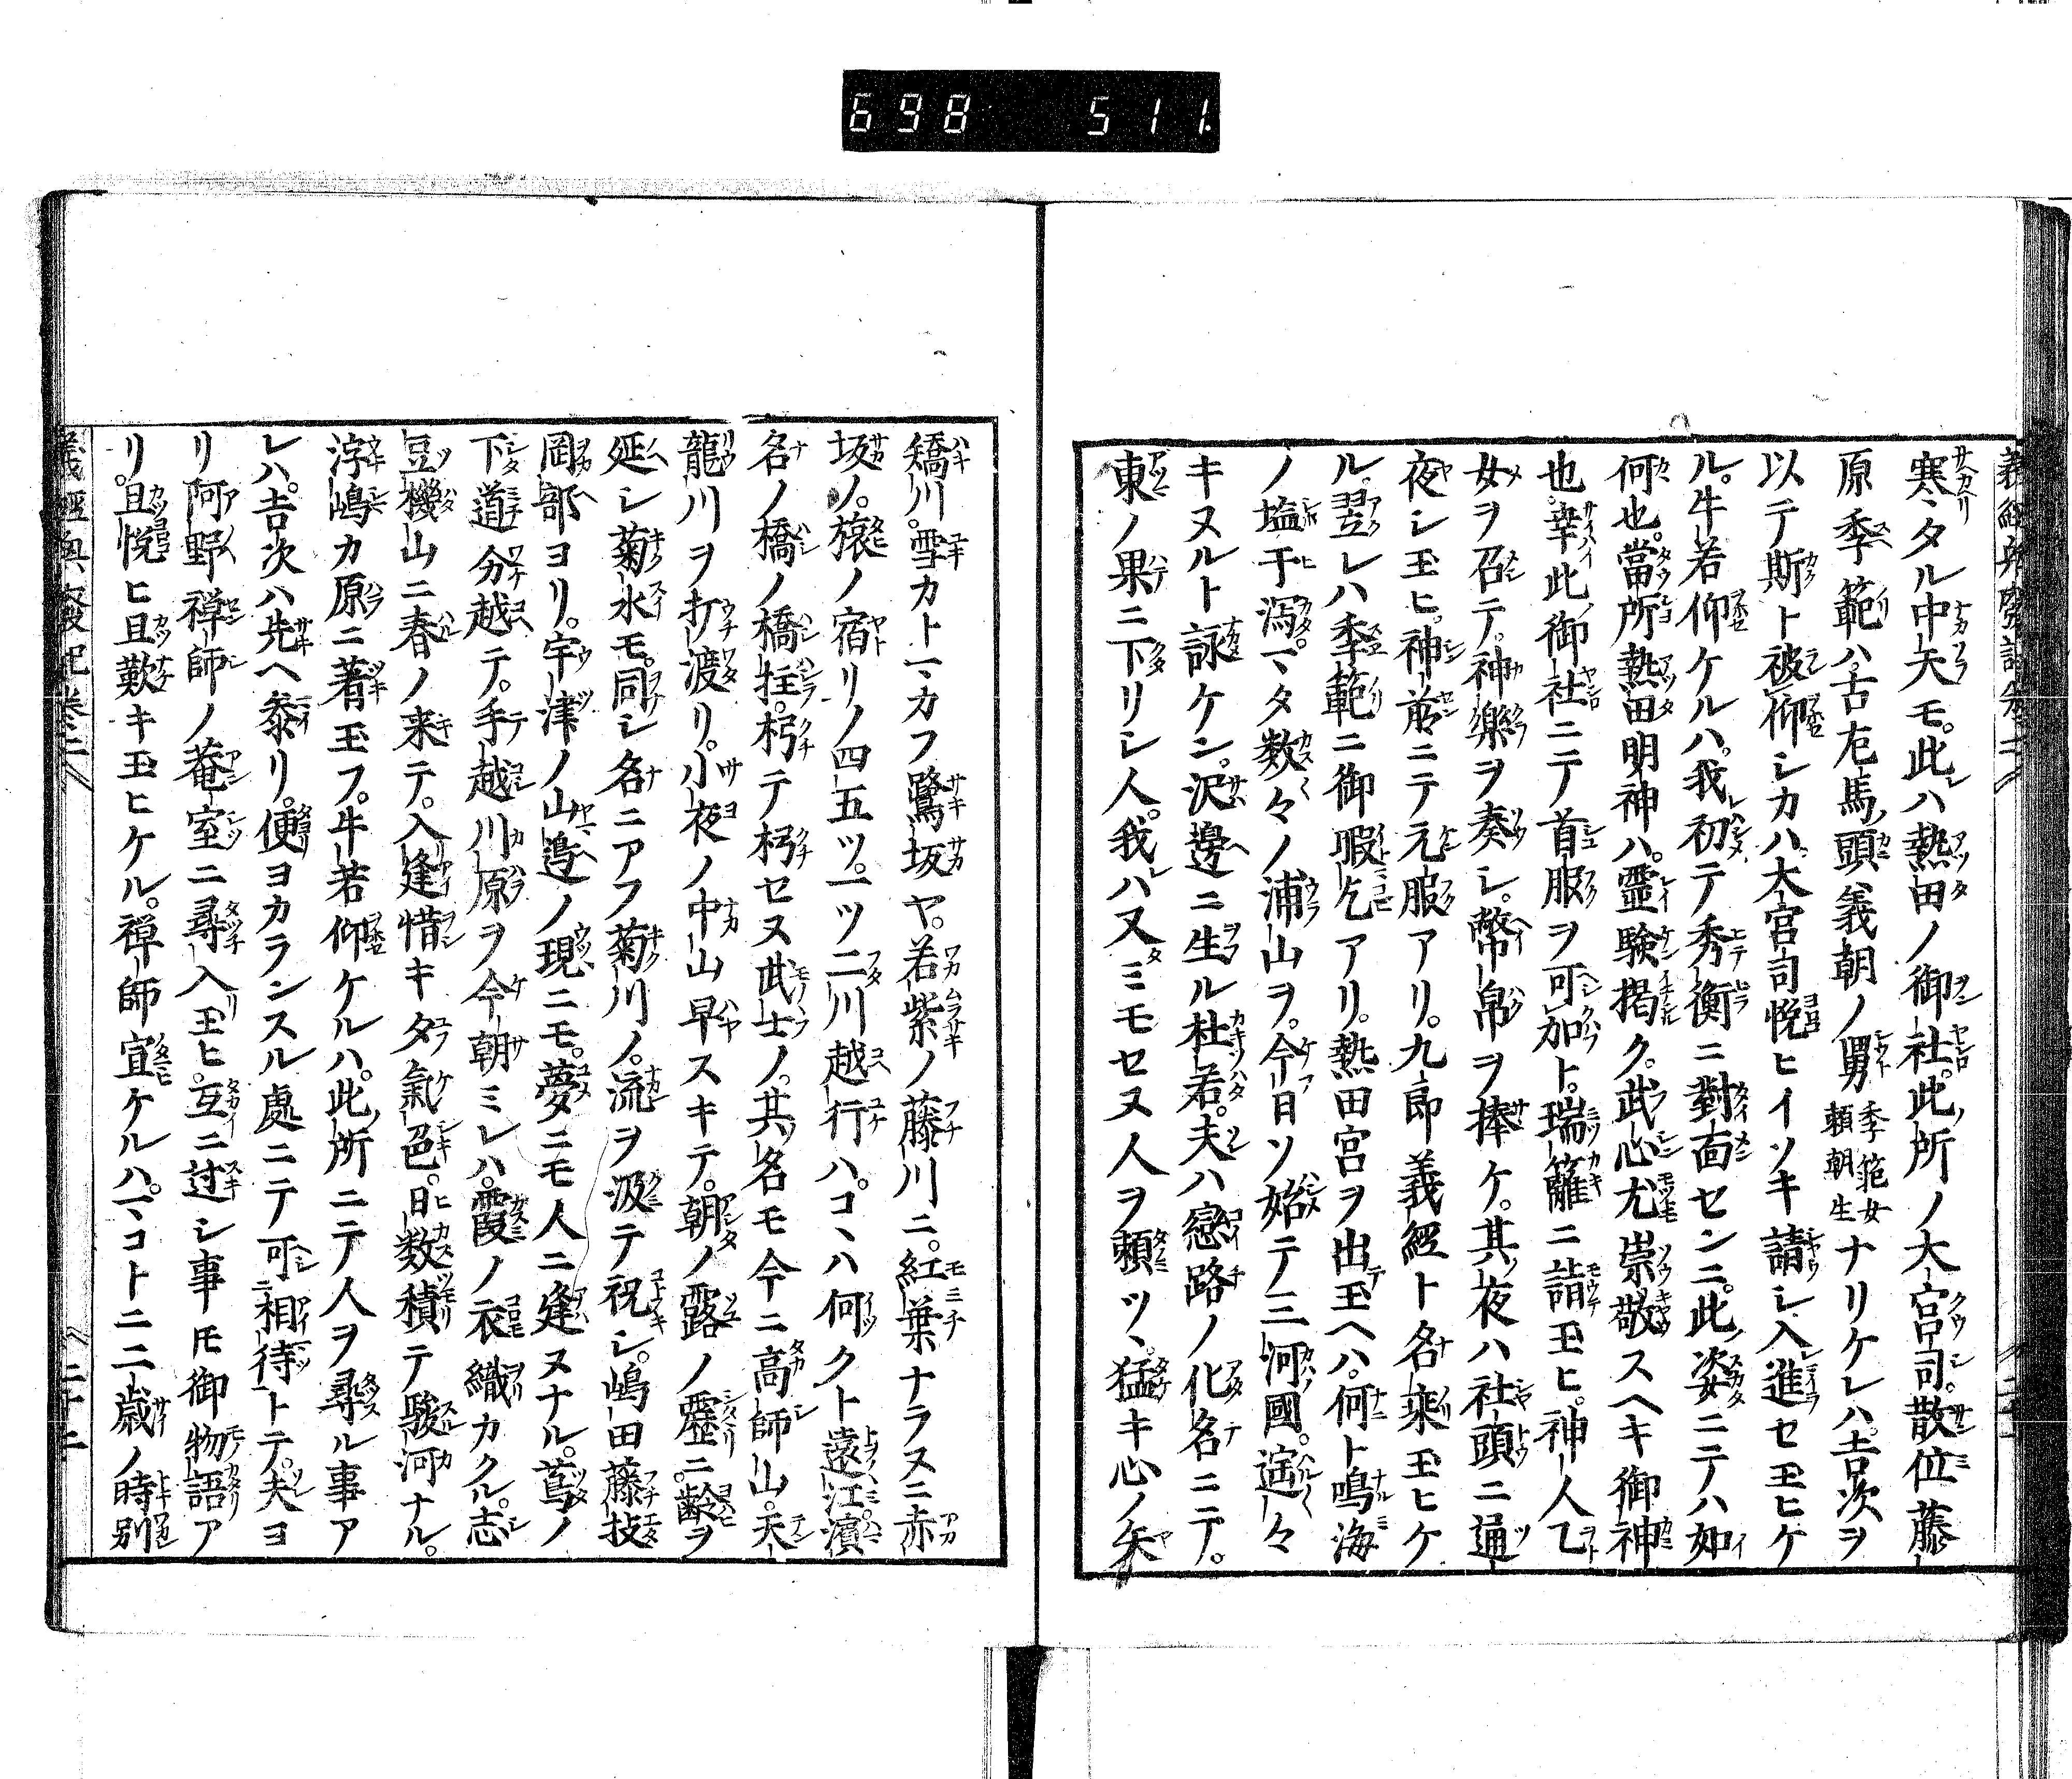 698 511.
寒タル中矢モ。此ハ熱田ノ御社。此所ノ大宮司。散位藤
原季範ハ。古左馬頭義朝ノ舅季範女頼朝生ナリケレハ。吉次ヲ
以テ斯ト被仰シカハ。大宮司悦ヒイソキ請シ入進セ玉ヒケ
ル。牛若仰ケルハ。我初テ秀衡ニ對面センニ。此姿ニテハ如
何也。當所熱田明神ハ。霊験掲ク。武心尤崇敬スヘキ御神
也。幸此御社ニテ首服ヲ可加ト。瑞籬ニ詣玉ヒ。神人乙
女ヲ召テ。神樂ヲ奏シ。幣帛ヲ捧ケ。其夜ハ社頭ニ通
夜シ玉ヒ。神前ニテ元服アリ。九郎義經ト名乘玉ヒケ
ル。翌レハ季範ニ御暇乞アリ。熱田宮ヲ出玉ヘハ。何ト鳴海
ノ塩干潟。マタ数々ノ浦山ヲ。今日ソ始テ三河國。遥々
キヌルト詠ケン。沢邊ニ生ル杜若。夫ハ戀路ノ化名ニテ。
東ノ果ニ下リシ人。我ハ又ミモセヌ人ヲ頼ツヽ。猛キ心ノ矢
矯川。雪カトマカフ鷺坂ヤ。若紫ノ藤川ニ。紅葉ナラヌニ赤
坂ノ。旅ノ宿リノ四五ツ。一ツ二川越行ハ。コヽハ何クト遠江。濱
名ノ橋ノ橋柱。朽テ朽セヌ武士ノ。其名モ今ニ高師山。天
龍川ヲ打渡リ。小夜ノ中山早スキテ。朝ノ露ノ歴ニ。齢ヲ
延シ菊水モ。同シ名ニアフ菊川ノ。流ヲ汲テ祝シ。嶋田藤枝
岡部ヨリ。宇津ノ山邉ノ現ニモ。夢ニモ人ニ逢ヌナル。蔦ノ
下道分越テ。手越川原ヲ今朝ミレハ。霞ノ衣織カクル。志
豆機山ニ春ノ来テ。入逢惜キ夕氣色。日数積テ駿河ナル。
浮嶋カ原ニ著玉フ。牛若仰ケルハ。此所ニテ人ヲ尋ル事ア
レハ。吉次ハ先ヘ参リ。便ヨカランスル處ニテ可相待トテ。夫ヨ
リ阿野禅師ノ菴室ニ尋入玉ヒ。互ニ過シ事𪜈御物語ア
リ。且悦ヒ且歎キ玉ヒケル。禅師宣ケルハ。マコトニ二歳ノ時別